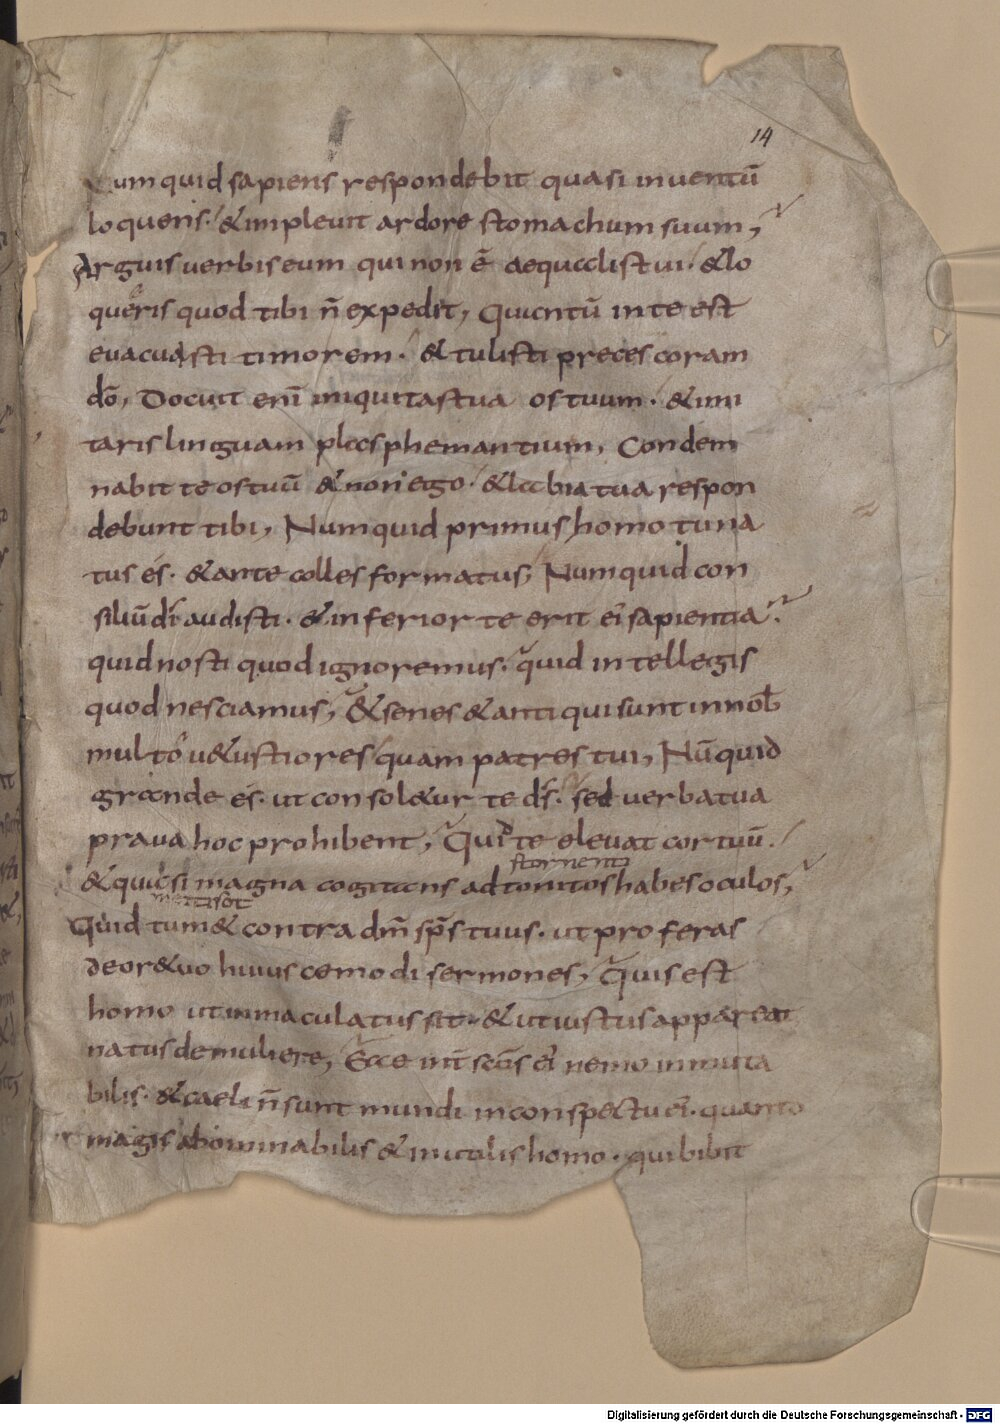 14
Numquid sapiens respondebit quasi inventū
loqueris. & implevit ardore stomachum suum,
Arguis verbis eum qui non ē aequalis tui. & lo
queris quod tibi n̄ expedit, Quantū in te est
evacuasti timorem. & tulisti preces coram
dō, Docuit enī iniquitas tua os tuum. & imi
taris linguam plasphemantium, Condem
nabit te os tuū & non ego. & labia tua respon
debunt tibi, Numquid primus homo tu na
tus és. & ante colles formatus, Numquid con
siliū dī audisti. & inferior te erit eī sapientia?
quid nosti quod ignoremus. quid intellegis
quod nesciamus, & senes & antiqui sunt in nob̄
multo v&ustiores quam patres tui, Nū quid
grande és. ut consol&ur te ds̄. sed verba tua
prava hoc prohibent, Quid te elevat cor tuū.
stornento
& quasi magna cogitans adtonitos habes oculos,
Quid tum& contra dm̄ sps̄ tuus. ut proferas
de or& uo huius cemodi sermones, Quis est
homo ut inmaculatus sit. & ut iustus appareat
natus de muliere, Ecce int̄ scōs eī nemo inmuta
bilis. & caeli n̄ sunt mundi in conspectu eī. quanto
magis abominabilis & inutilis homo. qui bibit
Digitalisierung gefördert durch die Deutsche Forschungsgemeinschaft - DFG